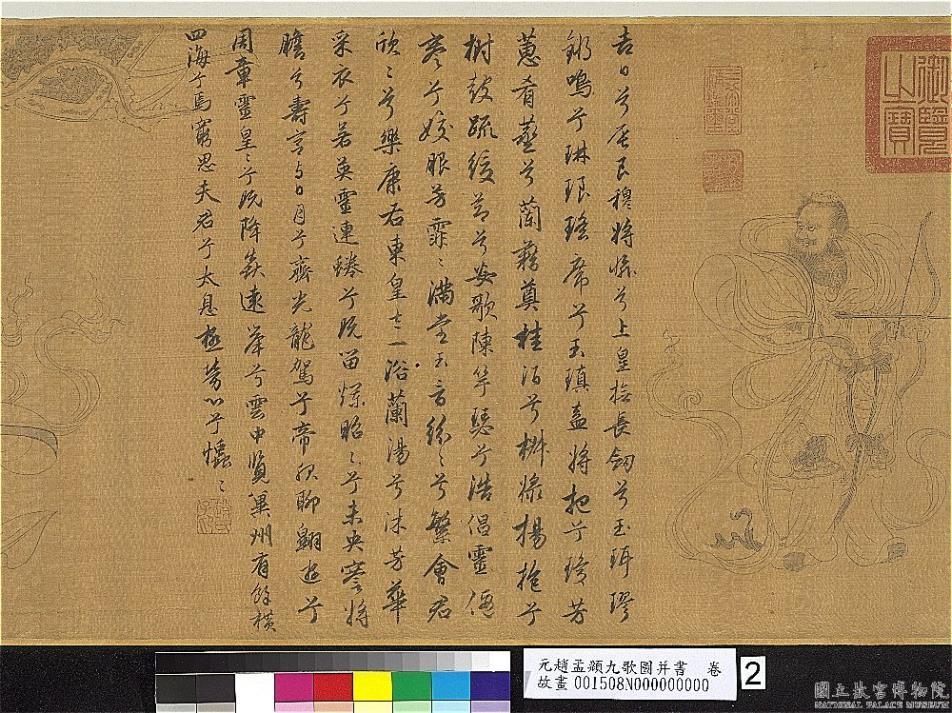 御覽之寶
三希堂精鑑璽
宜子孫
吉日兮辰良穆將愉兮上皇撫長劒兮玉珥璆
鏘鳴兮琳琅瑤席兮玉瑱盍將把兮瓊芳
蕙肴蒸兮蘭藉奠桂酒兮椒漿揚枹兮
拊鼓疏緩節兮安歌陳竽瑟兮浩倡靈偃
蹇兮姣服芳霏〻滿堂五音紛〻兮繁會君
欣〻兮樂康右東皇太一浴蘭湯兮沐芳華
采衣兮若英靈連蜷兮既留爛昭〻兮未央蹇將
憺兮壽宮與日月兮齊光龍駕兮帝服聊翱遊兮
周章靈皇〻兮既降猋遠舉兮雲中覽冀州有餘橫
四海兮焉窮思夫君兮太息極勞心兮
元趙孟頫九歌圖并書 卷
故畫001508N000000000
2
國立故宮博物院
NATIONAL PALACE MUSEUM